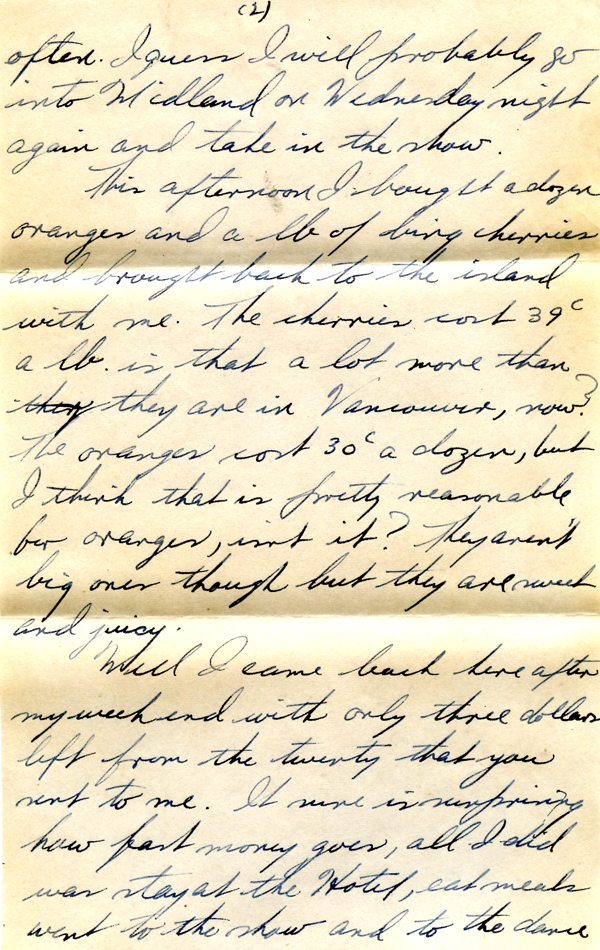 (2)
often. I guess I will probably go
into Midland on Wednesday night
again and take in the show.
This afternoon I bought a dozen
oranges and a lb of bing cherries
and brought back to the island
with me. The cherries cost 39c
a lb. is that a lot more than
they they are in Vancouver, now?
The oranges cost 30c a dozen, but
I think that is pretty reasonable
for oranges, isnt it? They aren't
big ones though but they are sweet
and juicy.
Well I came back here after
my weekend with only three dollars
left from the twenty that you
sent to me. It sure is surprising
how fast money goes, all I did
was stay at the Hotel, eat meals
went to the show and to the dance